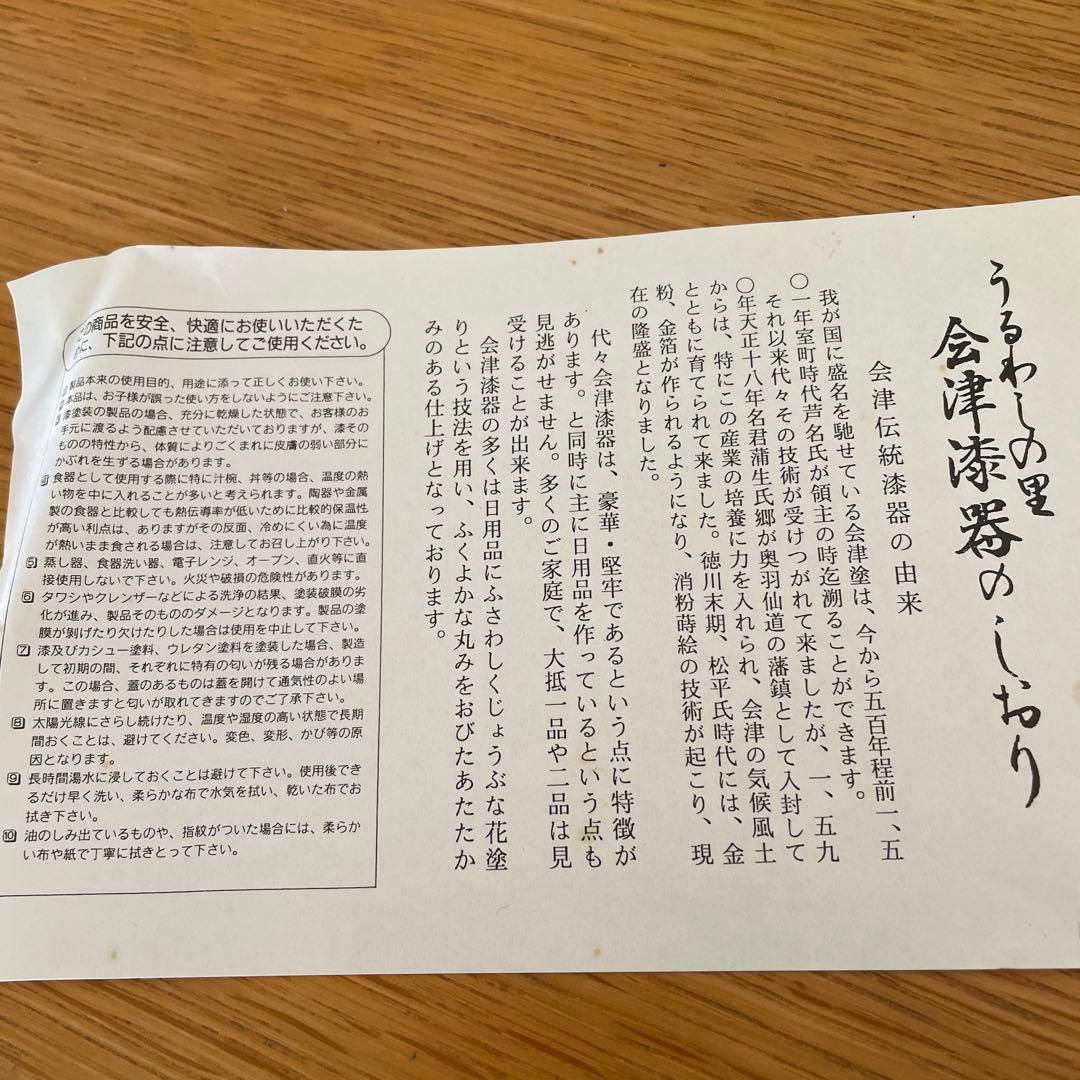 うるわしの里
会津漆器のしおり
会津伝統漆器の由来
我が国に盛名を馳せている会津塗は、今から五百年程前一、五
〇一年室町時代芦名氏が領主の時迄溯ることができます。
それ以来代々その技術が受けつがれて来ましたが、一、五九
〇年天正十八年名君蒲生氏郷が奥羽仙道の藩鎮として入封して
からは、特にこの産業の培養に力を入れられ、会津の気候風土
とともに育てられて来ました。徳川末期、松平氏時代には、金
粉、金箔が作られるようになり、消粉蒔絵の技術が起こり、現
在の隆盛となりました。
代々会津漆器は、豪華・堅牢であるという点に特徴が
あります。と同時に主に日用品を作っているという点も
見逃がせません。多くのご家庭で、大抵一品や二品は見
受けることが出来ます。
会津漆器の多くは日用品にふさわしくじょうぶな花塗
りという技法を用い、ふくよかな丸みをおびたあたたか
みのある仕上げとなっております。
この商品を安全、快適にお使いいただくた
めに、下記の点に注意してご使用ください。
製品本来の使用目的、用途に添って正しくお使い下さい。
本品は、お子様が誤った使い方をしないようにご注意下さい。
漆塗装の製品の場合、充分に乾燥した状態で、お客様のお
手元に渡るよう配慮させていただいておりますが、漆その
ものの特性から、体質によりごくまれに皮膚の弱い部分に
かぶれを生ずる場合があります。
食器として使用する際に特に汁椀、丼等の場合、温度の熱
い物を中に入れることが多いと考えられます。陶器や金属
製の食器と比較しても熱伝導率が低いために比較的保温性
が高い利点は、ありますがその反面、冷めにくい為に温度
が熱いまま食される場合は、注意してお召し上がり下さい。
5 蒸し器、食器洗い器、電子レンジ、オーブン、直火等に直
接使用しないで下さい。火災や破損の危険性があります。
6 タワシやクレンザーなどによる洗浄の結果、塗装破膜の劣
化が進み、製品そのもののダメージとなります。製品の塗
膜が剝げたり欠けたりした場合は使用を中止して下さい。
7 漆及びカシュー塗料、ウレタン塗料を塗装した場合、製造
して初期の間、それぞれに特有の匂いが残る場合がありま
す。この場合、蓋のあるものは蓋を開けて通気性のよい場
所に置きますと匂いが取れてきますのでご了承下さい。
8 太陽光線にさらし続けたり、温度や湿度の高い状態で長期
間おくことは、避けてください。変色、変形、かび等の原
因となります。
9 長時間湯水に浸しておくことは避けて下さい。使用後でき
るだけ早く洗い、柔らかな布で水気を拭い、乾いた布でお
拭き下さい。
10 油のしみ出ているものや、指紋がついた場合には、柔らか
い布や紙で丁寧に拭きとって下さい。